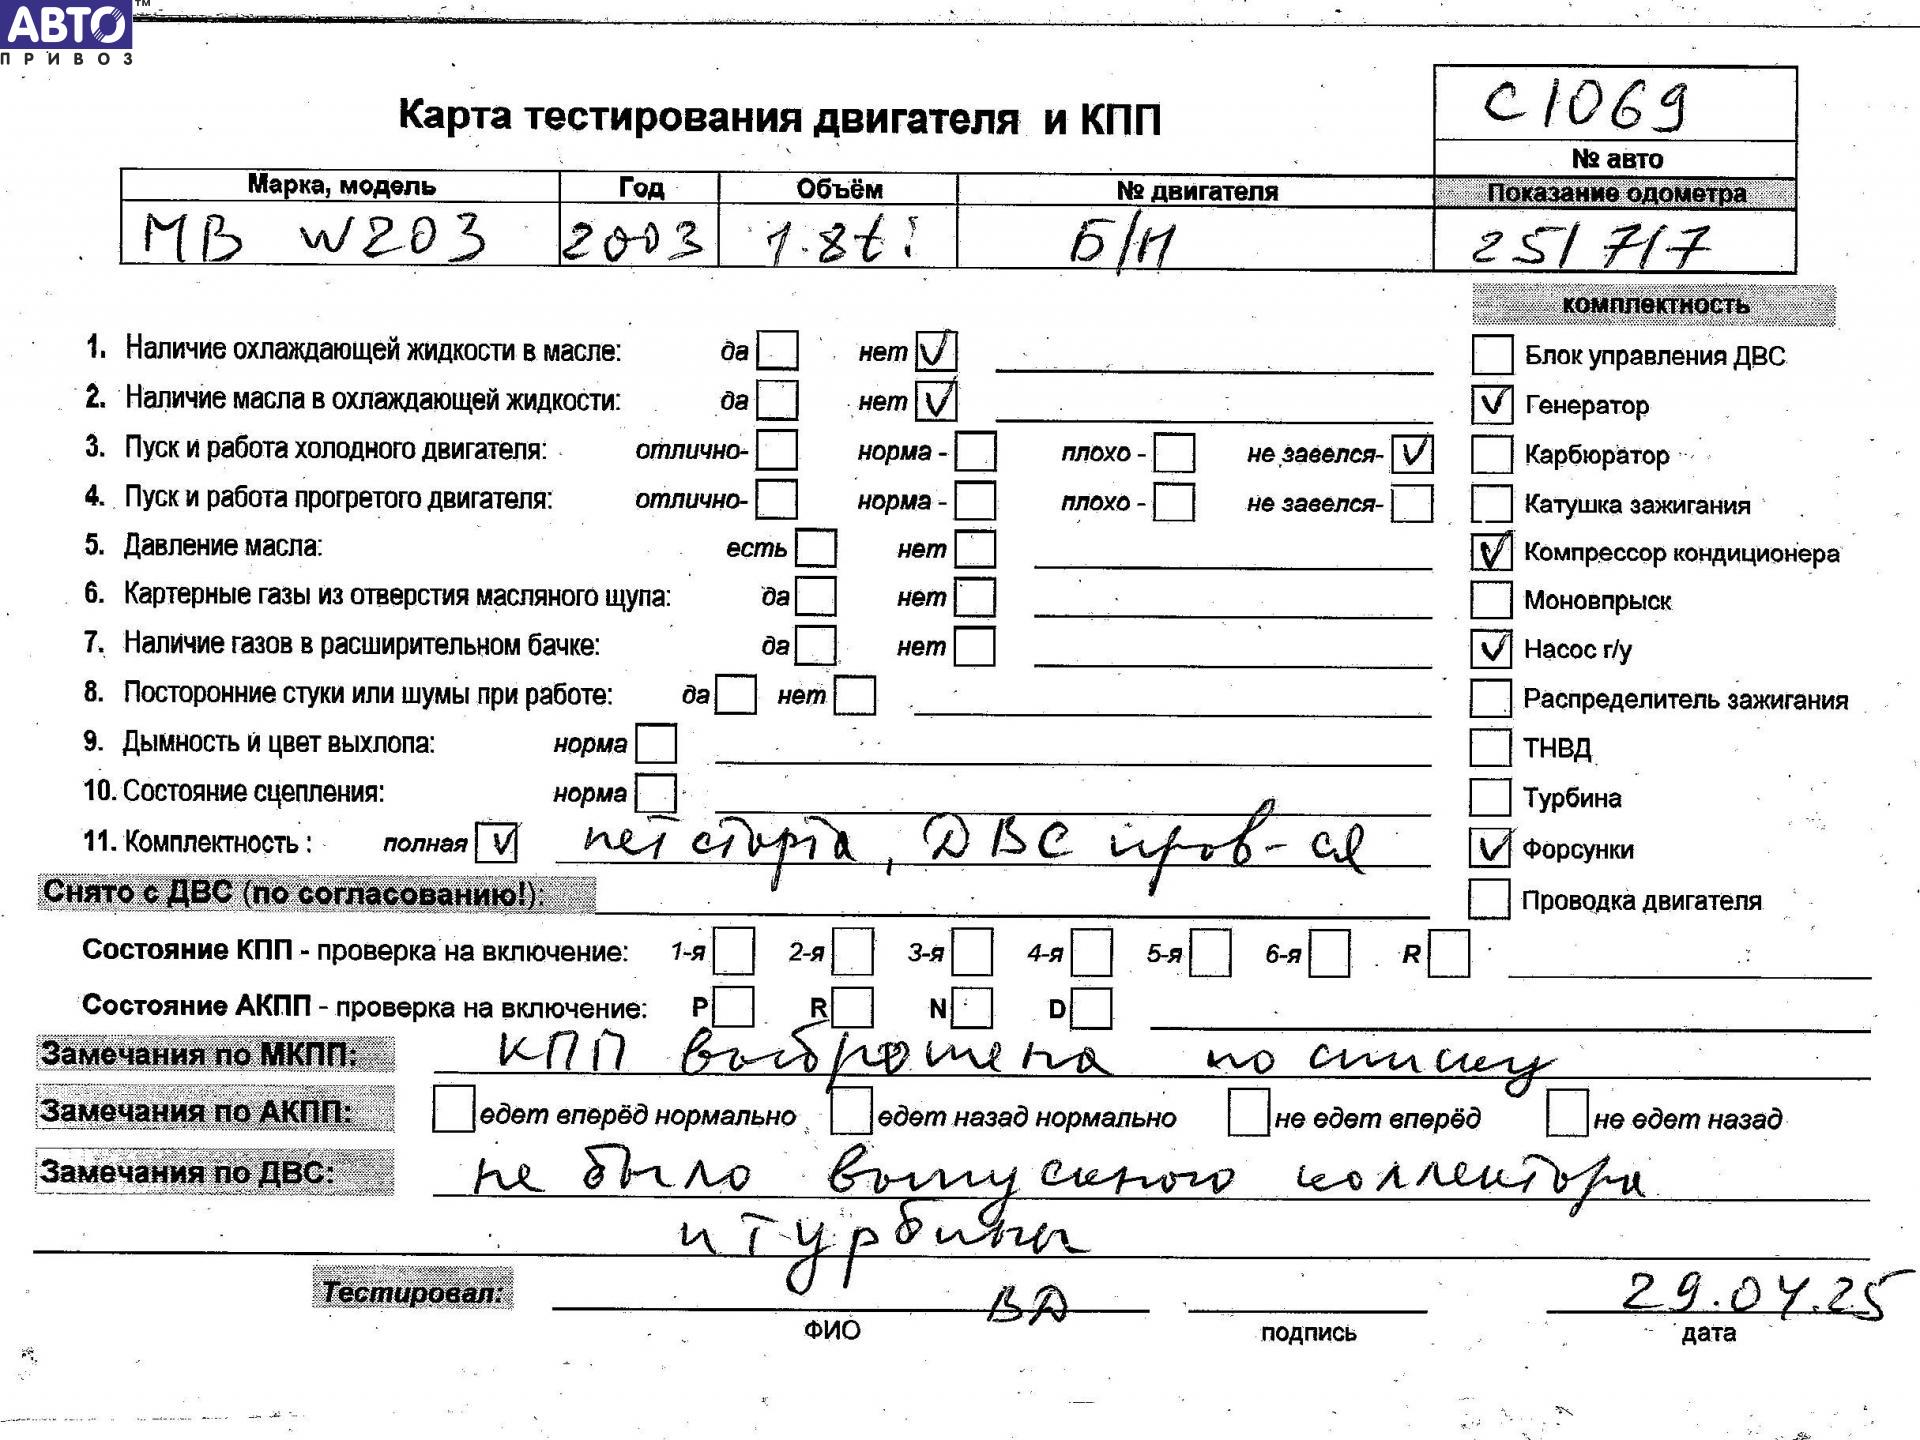 АВТО™
ПРИВОЗ
С1069
Карта тестирования двигателя и КПП
№ авто
Марка, модель Год Объём № двигателя Показание одометра
MB W203 2003 1.8ti Б/Н 251717
комплектность
1. Наличие охлаждающей жидкости в масле: да нет ✓ Блок управления ДВС
2. Наличие масла в охлаждающей жидкости: да нет ✓ ✓ Генератор
3. Пуск и работа холодного двигателя: отлично- норма - плохо - не завелся- ✓ Карбюратор
4. Пуск и работа прогретого двигателя: отлично- норма - плохо - не завелся- Катушка зажигания
5. Давление масла: есть нет ✓ Компрессор кондиционера
6. Картерные газы из отверстия масляного щупа: да нет Моновпрыск
7. Наличие газов в расширительном бачке: да нет ✓ Насос г/у
8. Посторонние стуки или шумы при работе: да нет Распределитель зажигания
9. Дымность и цвет выхлопа: норма ТНВД
10. Состояние сцепления: норма Турбина
11. Комплектность : полная ✓ нет старта, ДВС пров-ся ✓ Форсунки
Снято с ДВС (по согласованию!): Проводка двигателя
Состояние КПП - проверка на включение: 1-я 2-я 3-я 4-я 5-я 6-я R
Состояние АКПП - проверка на включение: P R N D
Замечания по МКПП: КПП выброшена по списку
Замечания по АКПП: едет вперёд нормально едет назад нормально не едет вперёд не едет назад
Замечания по ДВС: не было выпускного коллектора
и турбины
Тестировал: ВД 29.04.25
ФИО подпись дата